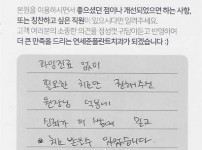 본원을 이용하시면서 좋으셨던 점이나 개선되었으면 하는 사항,
또는 칭찬하고 싶은 직원이 있으시다면 알려주세요.
고객 여러분의 소중한 의견을 정성껏 귀담아듣고 반영하여
더 큰 만족을 드리는 연세준플란트치과가 되겠습니다 :)
과잉진료 없이
필요한 치료만 진행해주신
원장님 덕분에
신뢰가 더 쌓여 믿고
치료 받을수 있었습니다